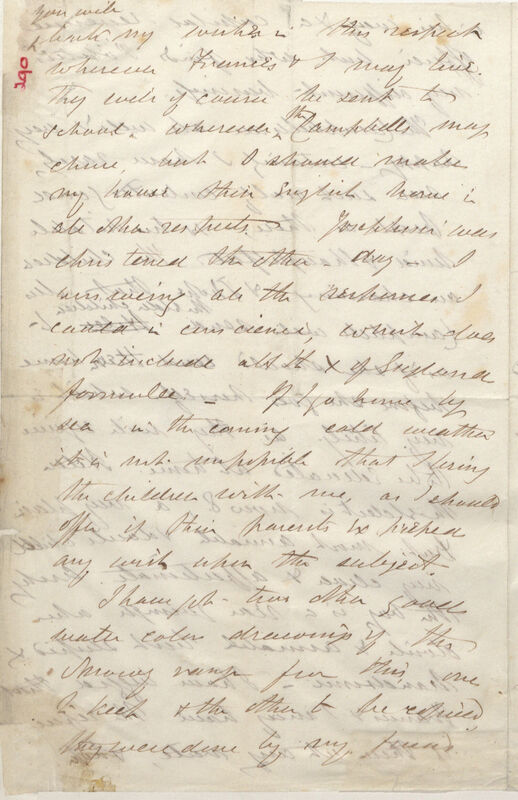 you will
& which my wishes in this respect
wherever Frances & I may live.
They will of course be sent to
school, wherever the Campbells may
chuse, but I should make
my house their English home in
all other respects. Josephine was
christened the other day. I
answering all the responses I
could in conscience, which does
not include all the Ch of England
formulae. If I go home by
sea in the coming cold weather
it is not impossible that I bring
the children with me, as I should
offer if their parents expressed
any wish upon the subject.
I have got two other good
water color drawings of the
Snowy range from this one
to keep & the other to be copied,
they were done by my friend
290